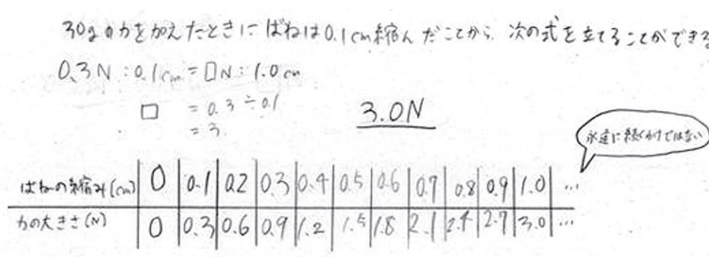 30gの力を加えたときにばねは0.1cm縮んだことから、次の式を立てることができる
0.3N:0.1cm=□N:1.0cm
□ =0.3÷0.1
=3
3.0N
永遠に続くわけではない
ばねの縮み(cm) 0 0.1 0.2 0.3 0.4 0.5 0.6 0.7 0.8 0.9 1.0 …
力の大きさ(N) 0 0.3 0.6 0.9 1.2 1.5 1.8 2.1 2.4 2.7 3.0 …